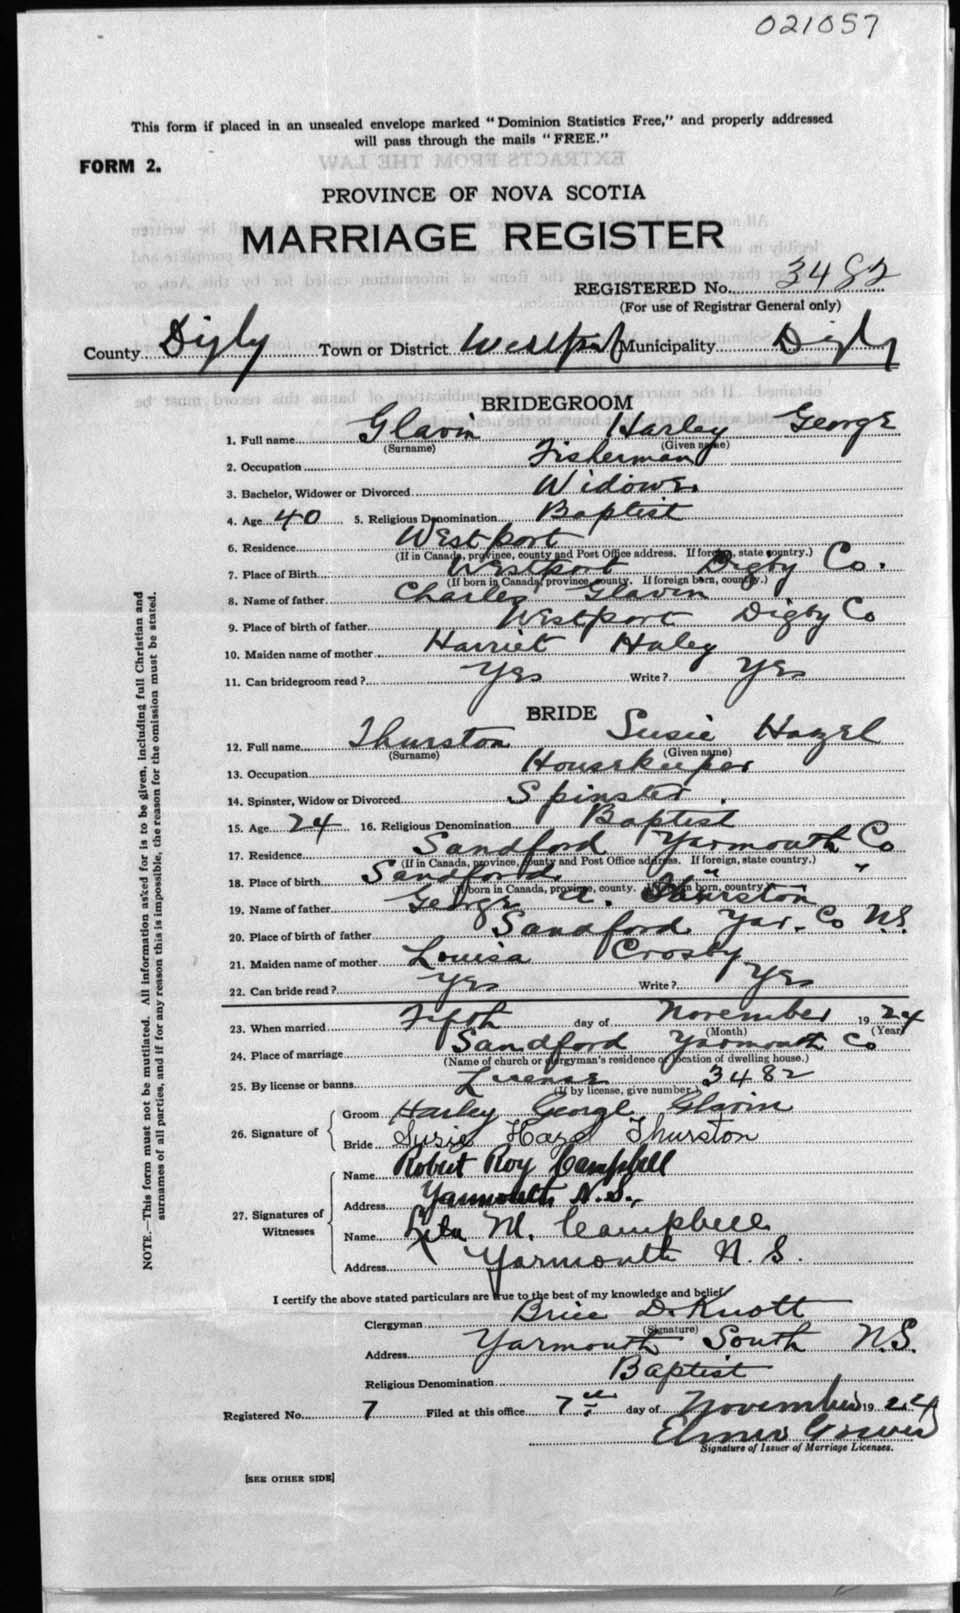 021057
This form if placed in an unsealed envelope marked "Dominion Statistics Free," and properly addressed
will pass through the mails "FREE."
FORM 2.
PROVINCE OF NOVA SCOTIA
MARRIAGE REGISTER
REGISTERED No. 3482
(For use of Registrar General only)
County Digby Town or District Westport Municipality Digby
BRIDEGROOM
1. Full name Glavin Harley George
(Surname) (Given name)
2. Occupation Fisherman
3. Bachelor, Widower or Divorced Widower
4. Age 40 5. Religious Denomination Baptist
6. Residence Westport
(If in Canada, province, county and Post Office address. If foreign, state country.)
7. Place of Birth Westport Digby Co.
(If born in Canada, province, county. If foreign born, country.)
8. Name of father Charles Glavin
9. Place of birth of father Westport Digby Co
10. Maiden name of mother Harriet Haley
11. Can bridegroom read? Yes Write? Yes
BRIDE
12. Full name Thurston Susie Hazel
(Surname) (Given name)
13. Occupation Housekeeper
14. Spinster, Widow or Divorced Spinster.
15. Age 24 16. Religious Denomination Baptist
17. Residence Sandford Yarmouth Co
(If in Canada, province, county and Post Office address. If foreign, state country.)
18. Place of birth Sandford " "
(If born in Canada, province, county. If foreign born, country.)
19. Name of father George A. Thurston
20. Place of birth of father Sandford Yar. Co N.S.
21. Maiden name of mother Louisa Crosby
22. Can bride read? Yes Write? Yes
23. When married Fifth day of November 1924
(Month) (Year)
24. Place of marriage Sandford Yarmouth Co
(Name of church or clergyman's residence or location of dwelling house.)
25. By license or banns License 3482
(If by license, give number.)
26. Signature of
Groom Harley George Glavin
Bride Susie Hazel Thurston
27. Signatures of Witnesses
Name Robert Roy Campbell
Address Yarmouth N.S.,
Name M. Campbell
Address Yarmouth N.S.
I certify the above stated particulars are true to the best of my knowledge and belief.
Clergyman Brice D. Knott
(Signature)
Address Yarmouth South N.S.
Religious Denomination Baptist
Registered No. 7 Filed at this office 7th day of November 1924
Elmer
Signature of Issuer of Marriage Licenses.
[SEE OTHER SIDE]
NOTE.—This form must not be mutilated. All information asked for is to be given, including full Christian and
surnames of all parties, and if for any reason this is impossible, the reason for the omission must be stated.